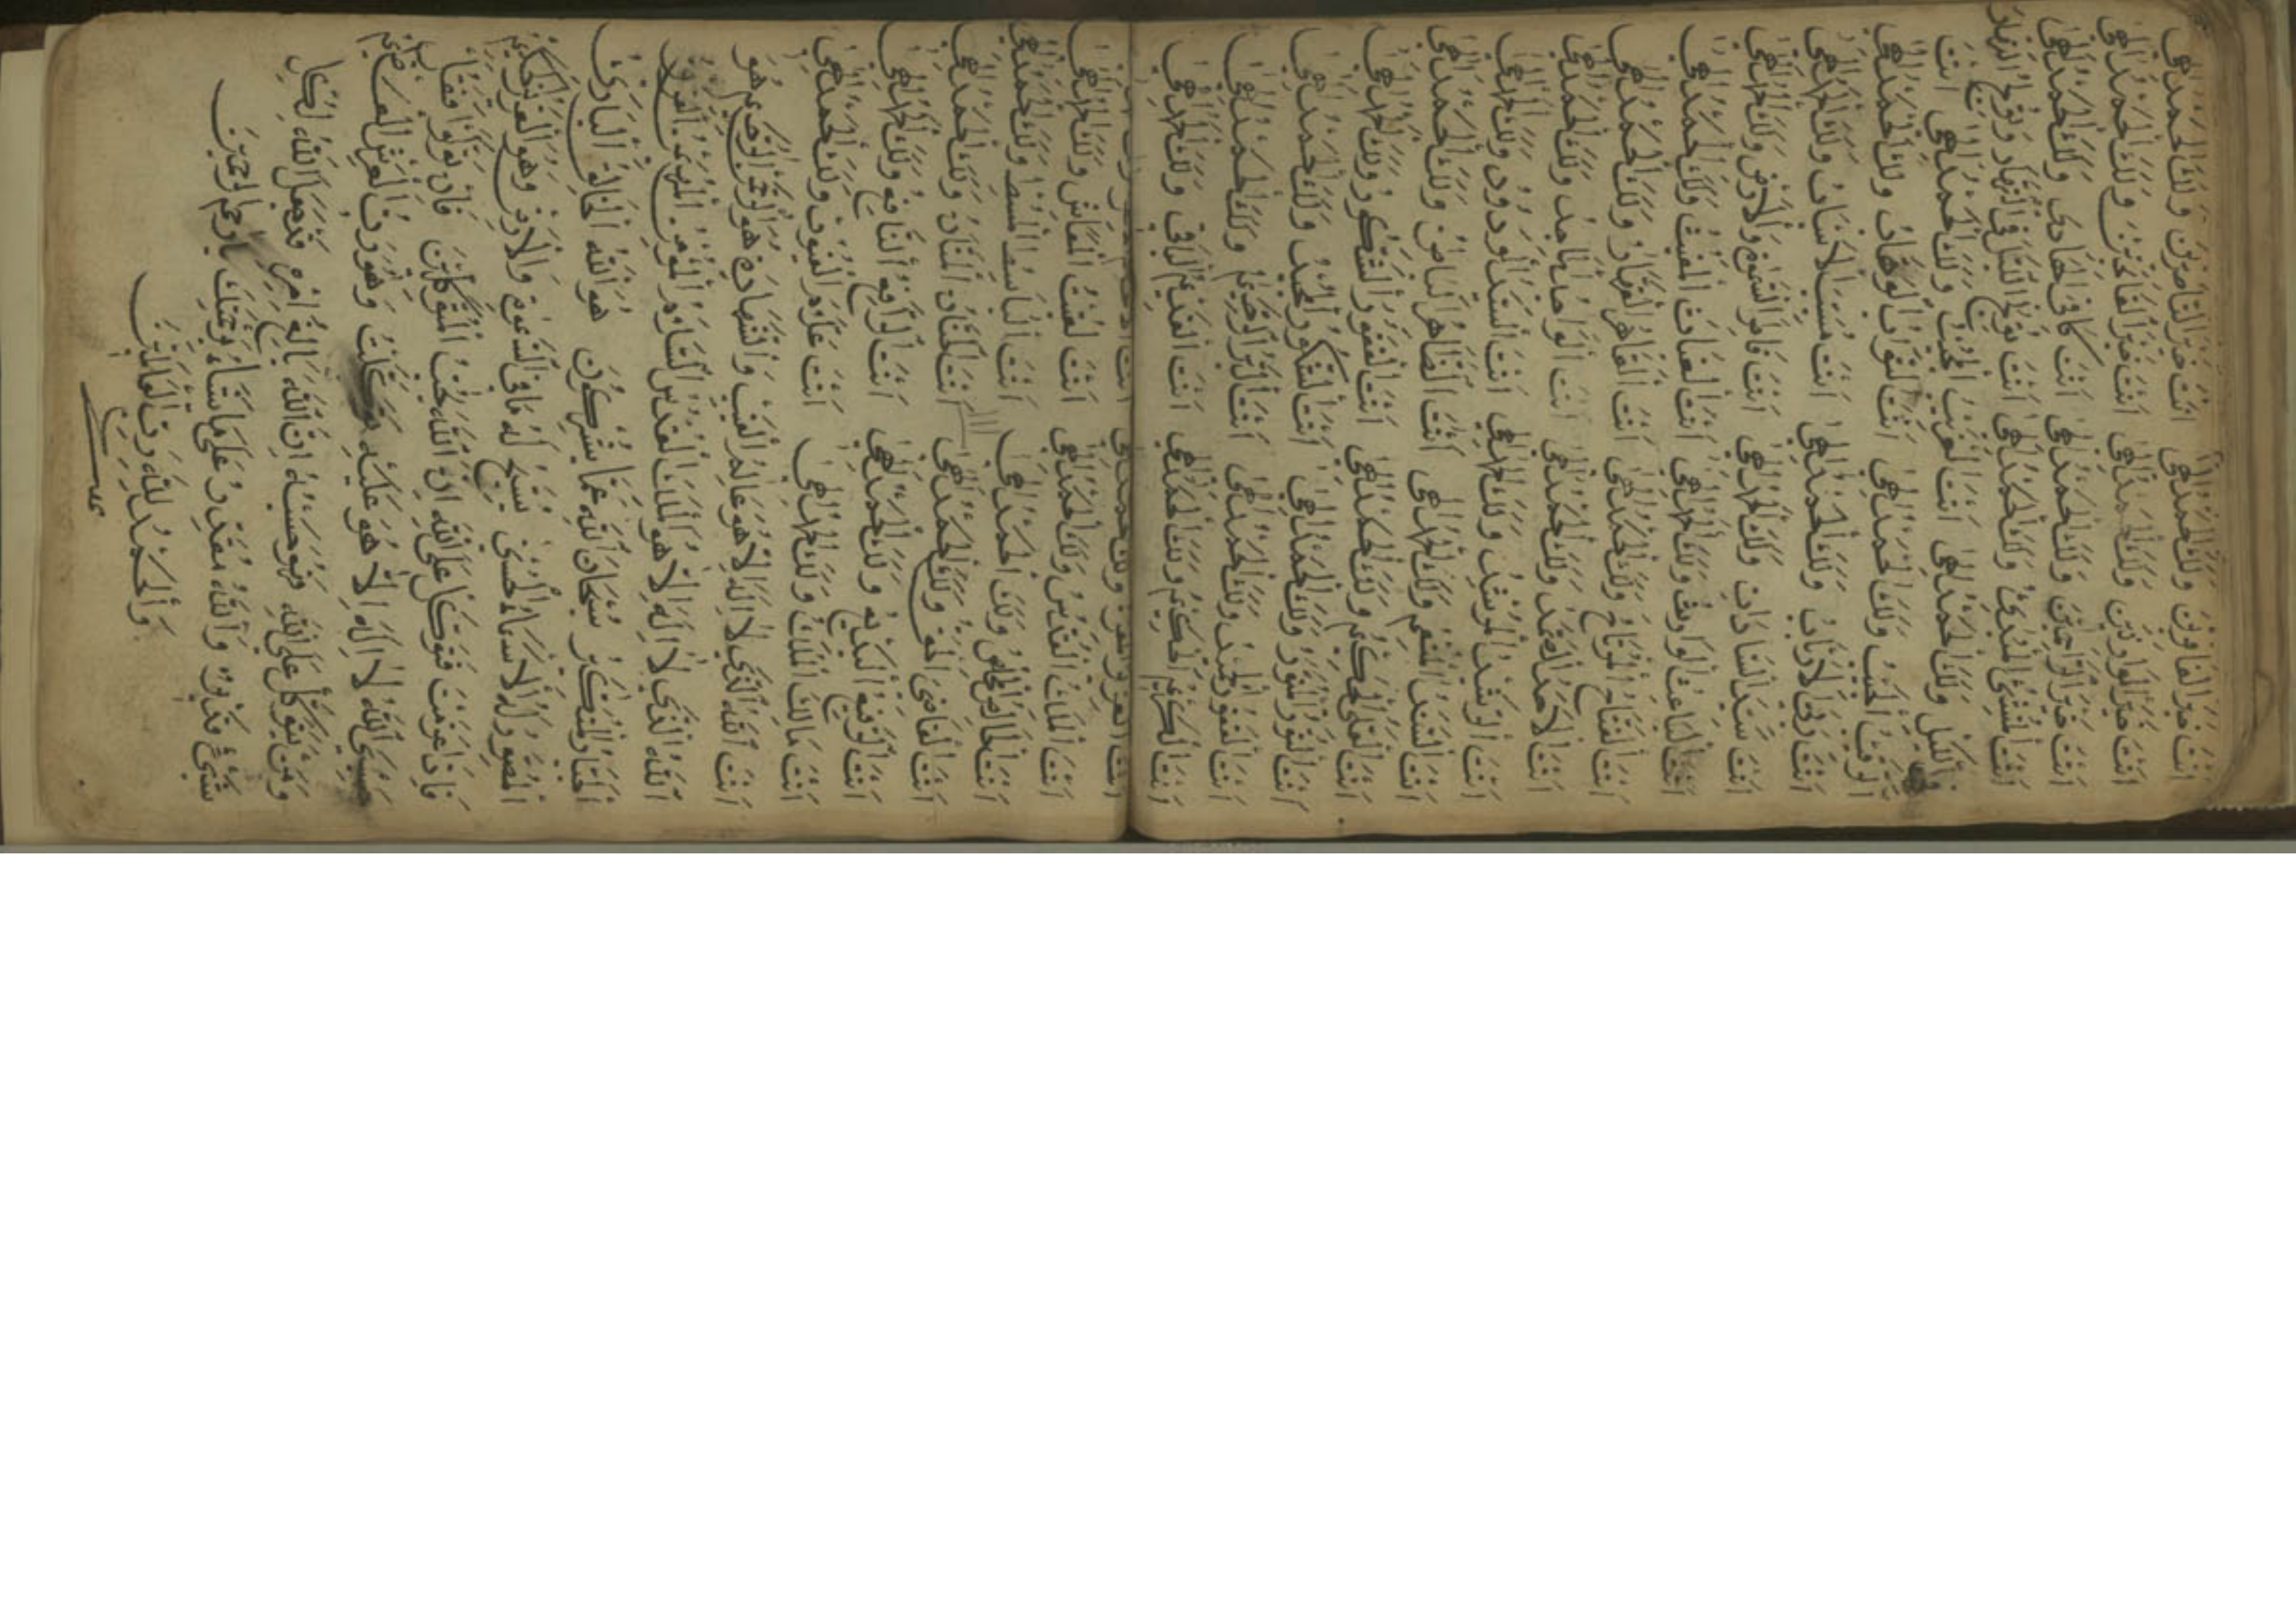 انت خير الغافرين ولك الحمد الهي انت خير الناصرين ولك الحمد الهي
انت خير الوارثين ولك الحمد الهي انت خير الفاتحين ولك الحمد الهي
انت خير الراحمين ولك الحمد الهي انت كافي الهادي ولك الحمد الهي
انت ولك الحمد الهي انت تولج الليل في النهار وتولج النهار
في الليل ولك الحمد الهي انت القريب المجيب ولك الحمد الهي انت
ولك الحمد الهي انت التواب الوهاب ولك الحمد الهي
انت رب الارباب ولك الحمد الهي انت مسبب الاسباب ولك الحمد الهي
انت سيد السادات ولك الحمد الهي انت فاطر السموات والارض ولك الحمد الهي
انت الباعث الوارث ولك الحمد الهي انت الغياث المغيث ولك الحمد الهي
انت الفتاح المرتاح ولك الحمد الهي انت القاهر القهار ولك الحمد الهي
انت الاحد الصمد ولك الحمد الهي انت الواحد الماجد ولك الحمد الهي
انت الرشيد المرشد ولك الحمد الهي انت السيد الودود ولك الحمد الهي
انت السيد المنعم ولك الحمد الهي انت الظاهر الباطن ولك الحمد الهي
انت العلي الحكيم ولك الحمد الهي انت الغفور الشكور ولك الحمد الهي
انت النور المنور ولك الحمد الهي انت الشكور ولك الحمد الهي
انت الغفور ولك الحمد الهي انت البر الرحيم ولك الحمد الهي
انت الكريم الحكيم ولك الحمد الهي انت القديم الباقي ولك الحمد الهي
انت العزيز المعز ولك الحمد الهي انت
انت الملك القدوس ولك الحمد الهي انت المغيث ولك الحمد الهي
انت الخالص المخلص ولك الحمد الهي انت الباسط ولك الحمد الهي
انت القاضي ولك الحمد الهي انت الحنان المنان ولك الحمد الهي
انت الرفيع البديع ولك الحمد الهي انت الرافع النافع ولك الحمد الهي
انت مالك الملك ولك الحمد الهي انت علام الغيوب ولك الحمد الهي
انت الله الذي لا اله الا هو عالم الغيب والشهادة هو الرحمن الرحيم هو
الله الذي لا اله الا هو الملك القدوس السلام المؤمن المهيمن العزيز
الجبار المتكبر سبحان الله عما يشركون هو الله الخالق البارئ
المصور له الاسماء الحسنى يسبح له ما في السموات والارض وهو العزيز الحكيم
فاذا عزمت فتوكل على الله ان الله يحب المتوكلين فان تولوا فقل
حسبي الله لا اله الا هو عليه توكلت وهو رب العرش العظيم
ومن يتوكل على الله فهو حسبه ان الله بالغ امره قد جعل الله لكل
شيء قدرا والله مقتدر على ما يشاء برحمتك يا ارحم الراحمين
والحمد لله رب العالمين